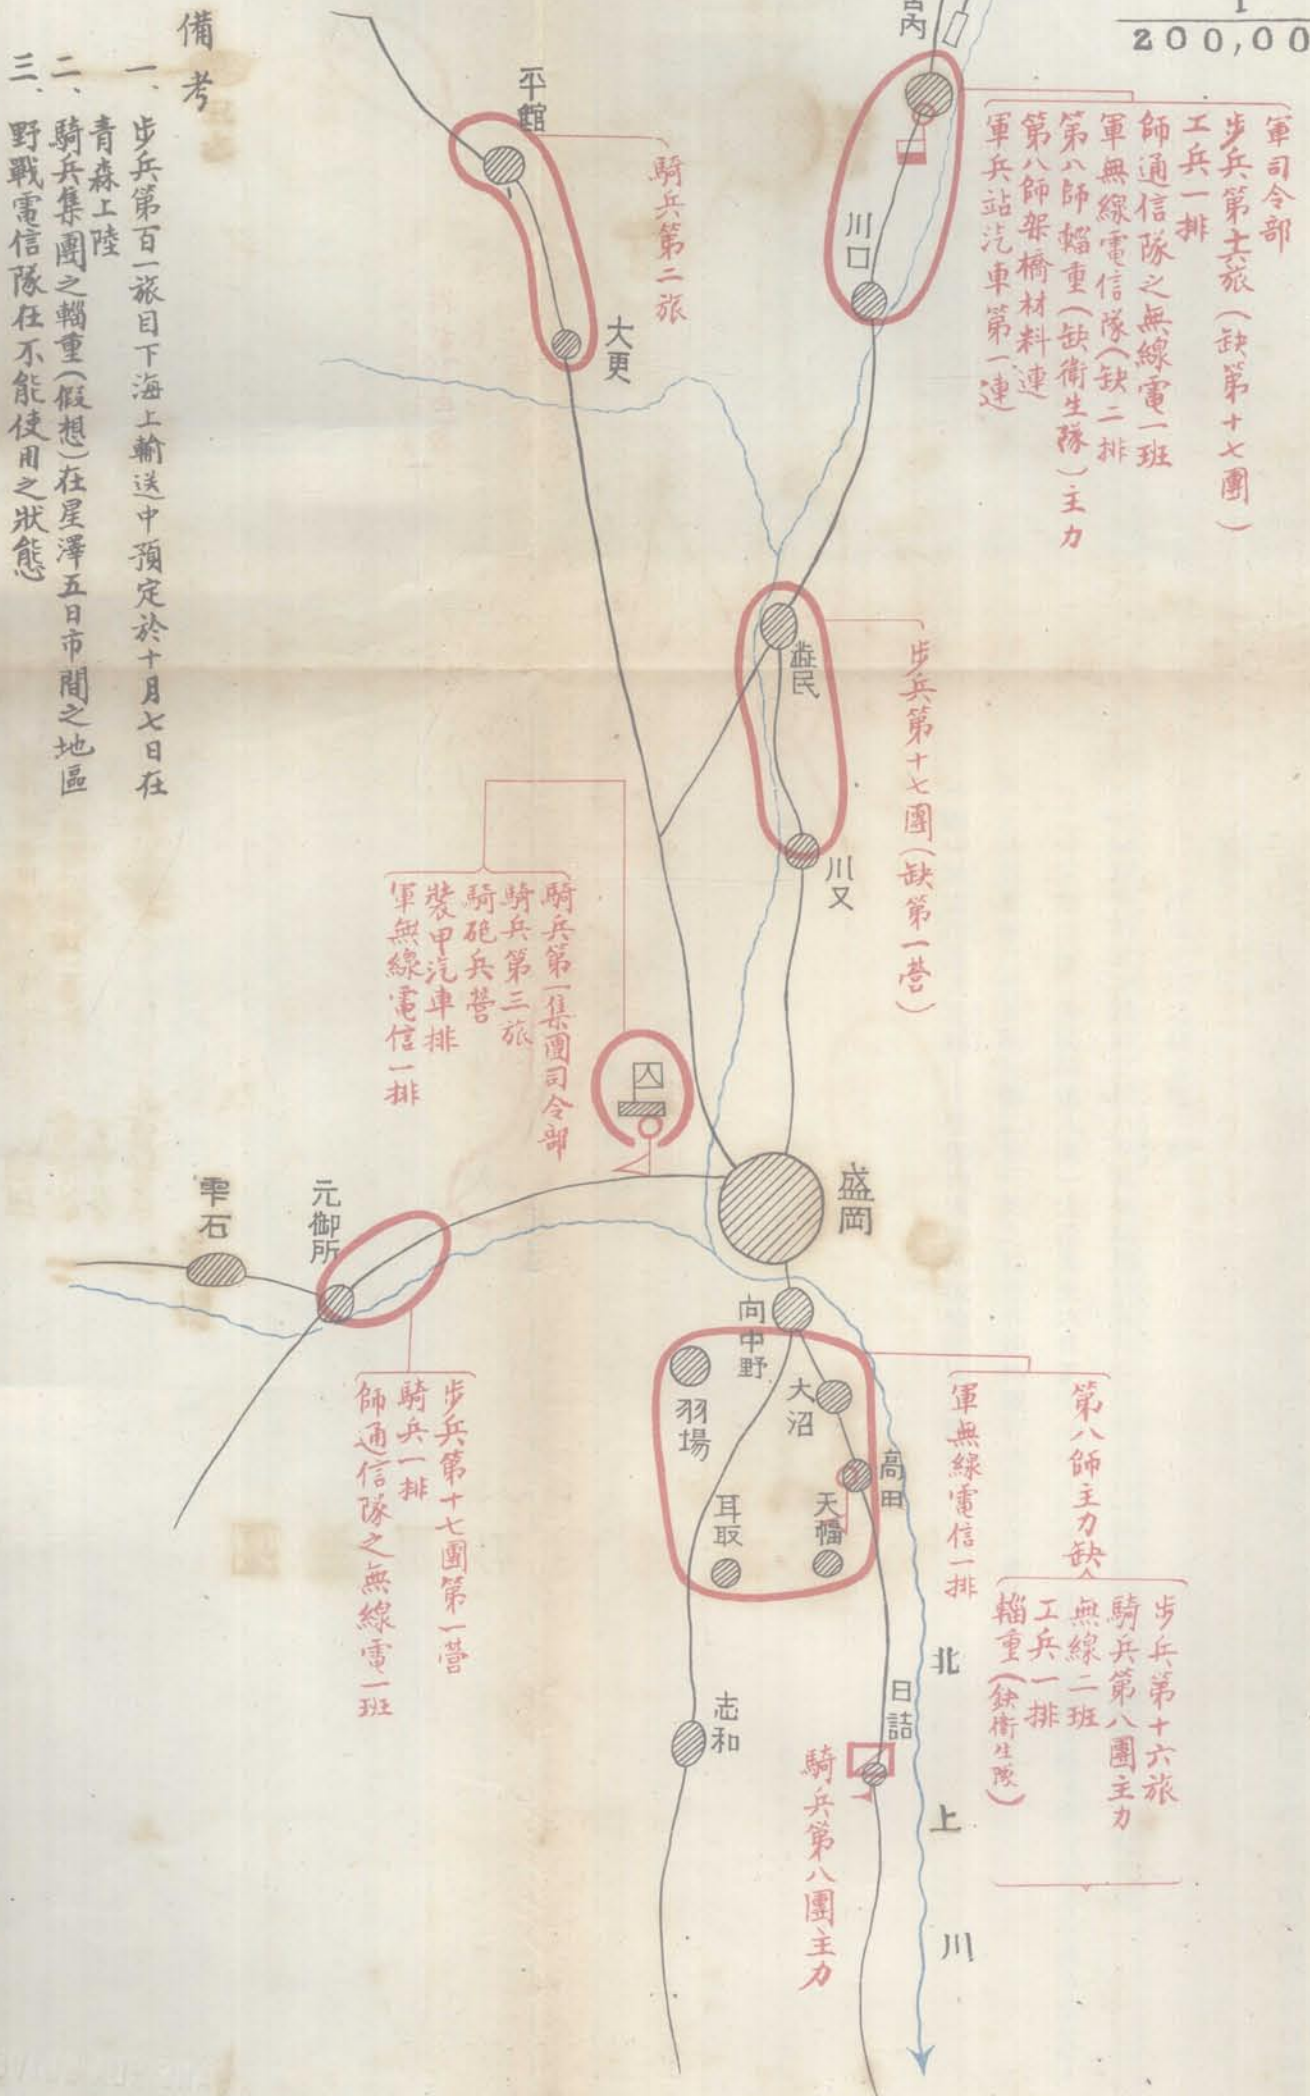 1
200,00
宮内
軍司令部
步兵第十六旅（缺第十七團）
工兵一排
師通信隊之無線電一班
軍無線電信隊（缺二排
第八師輜重（缺衛生隊）主力
第八師架橋材料連
軍兵站汽車第一連
川口
平館
騎兵第二旅
大更
澁民
步兵第十七團（缺第一營）
川又
騎兵第一集團司令部
騎兵第三旅
騎砲兵營
裝甲汽車排
軍無線電信一排
盛岡
雫石
元御所
步兵第十七團第一營
騎兵一排
師通信隊之無線電一班
向中野
羽場
大沼
高田
耳取
天幡
第八師主力缺
步兵第十六旅
騎兵第八團主力
無線二班
工兵一排
輜重（缺衛生隊）
軍無線電信一排
日詰
騎兵第八團主力
志和
北上川
備考
一、步兵第百一旅目下海上輸送中預定於十月七日在
青森上陸
二、騎兵集團之輜重（假想）在星澤五日市間之地區
三、野戰電信隊在不能使用之狀態